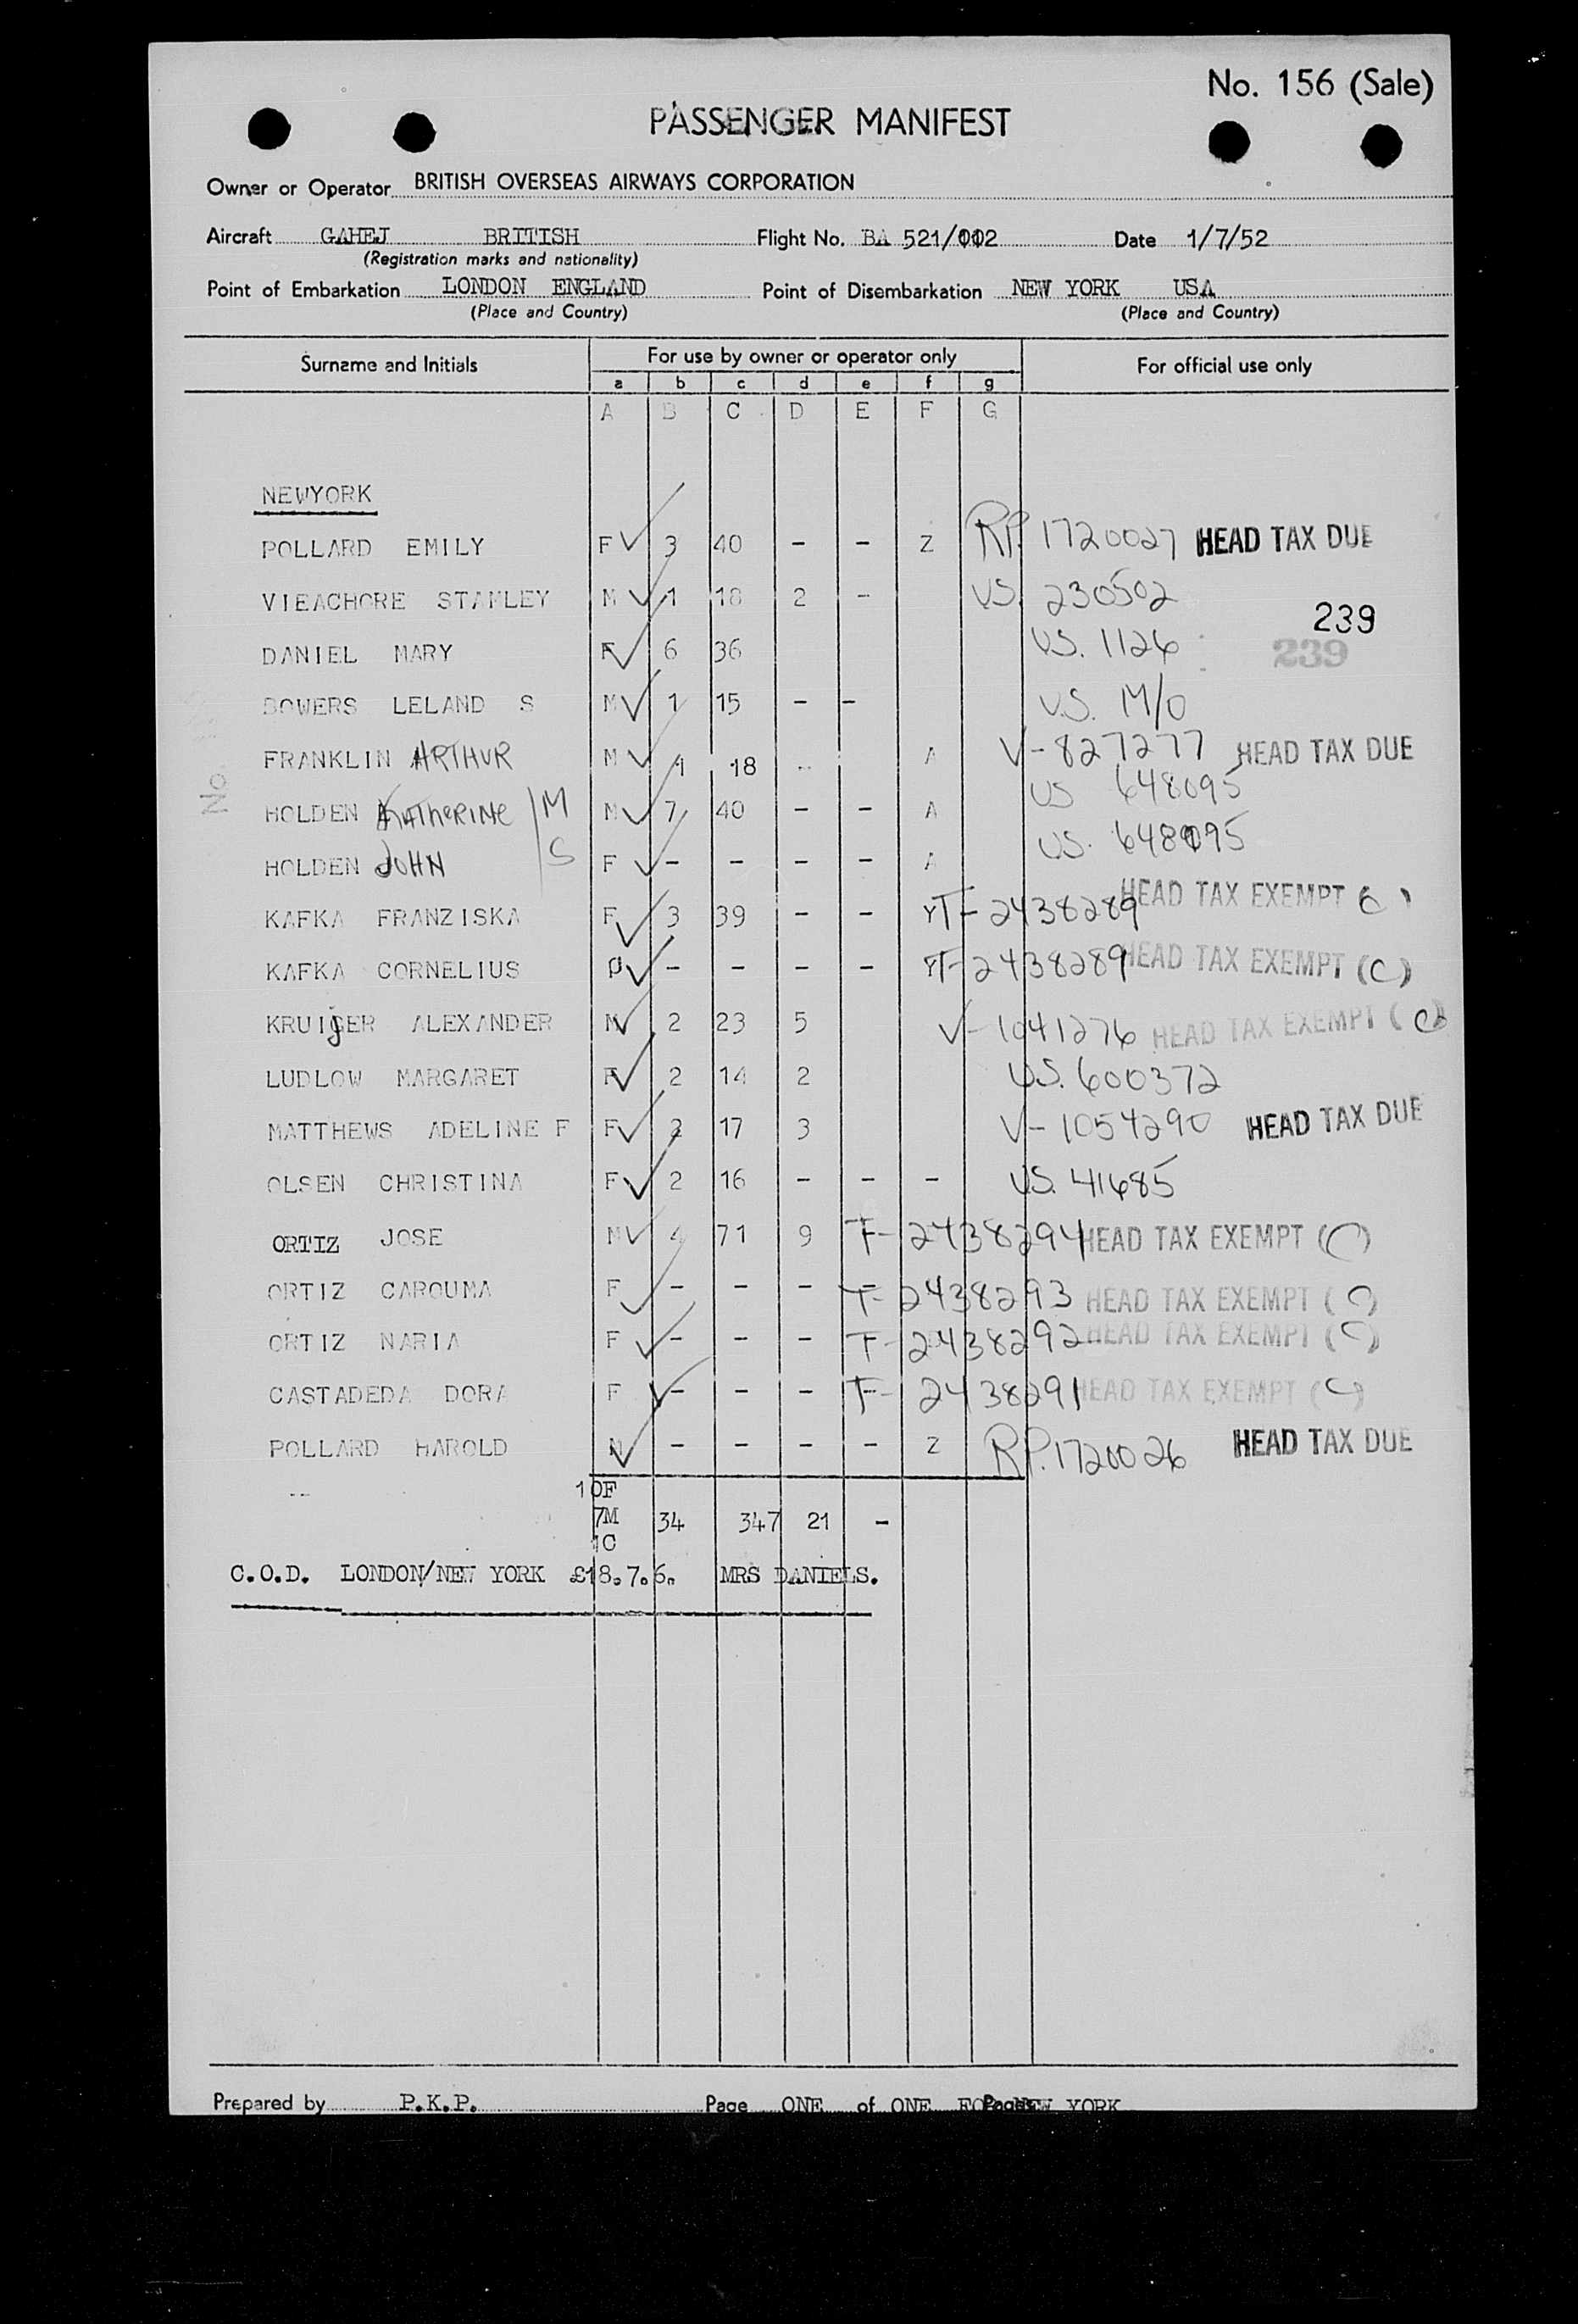 No. 156 (Sale)
PASSENGER MANIFEST
Owner or Operator BRITISH OVERSEAS AIRWAYS CORPORATION
Aircraft GAHEJ BRITISH Flight No. BA 521/002 Date 1/7/52
(Registration marks and nationality)
Point of Embarkation LONDON ENGLAND Point of Disembarkation NEW YORK USA
(Place and Country) (Place and Country)
Surname and Initials For use by owner or operator only For official use only
a b c d e f g
A B C D E F G
NEWYORK
POLLARD EMILY F 3 40 - - Z RP. 1720027 HEAD TAX DUE
VIEACHORE STANLEY M 1 18 2 - US. 230502
239
DANIEL MARY F 6 36 US. 1126 239
BOWERS LELAND S M 1 15 - - U.S. M/O
FRANKLIN ARTHUR M 1 18 - A V-827277 HEAD TAX DUE
HOLDEN KATHERINE M M 7 40 - - A US 648095
HOLDEN JOHN S F - - - - A US. 648095
KAFKA FRANZISKA F 3 39 - - YT-2438289 HEAD TAX EXEMPT (C)
KAFKA CORNELIUS - - - - YT-2438289 HEAD TAX EXEMPT (C)
KRUIJER ALEXANDER M 2 23 5 V-1041276 HEAD TAX EXEMPT (C)
LUDLOW MARGARET F 2 14 2 US. 600372
MATTHEWS ADELINE F F 2 17 3 V-1054290 HEAD TAX DUE
OLSEN CHRISTINA F 2 16 - - - US. 41685
ORTIZ JOSE M 4 71 9 T-2438294 HEAD TAX EXEMPT (C)
ORTIZ CAROUMA F - - - - T-2438293 HEAD TAX EXEMPT (C)
ORTIZ NARIA F - - - T-2438292 HEAD TAX EXEMPT (C)
CASTADEDA DORA F - - - - T-2438291 HEAD TAX EXEMPT (C)
POLLARD HAROLD M - - - - Z RP. 1720026 HEAD TAX DUE
10F
7M 34 347 21 -
1C
C.O.D. LONDON/NEW YORK £18.7.6. MRS DANIELS.
No
Prepared by P.K.P. Page ONE of ONE FOR NEW YORK Pages